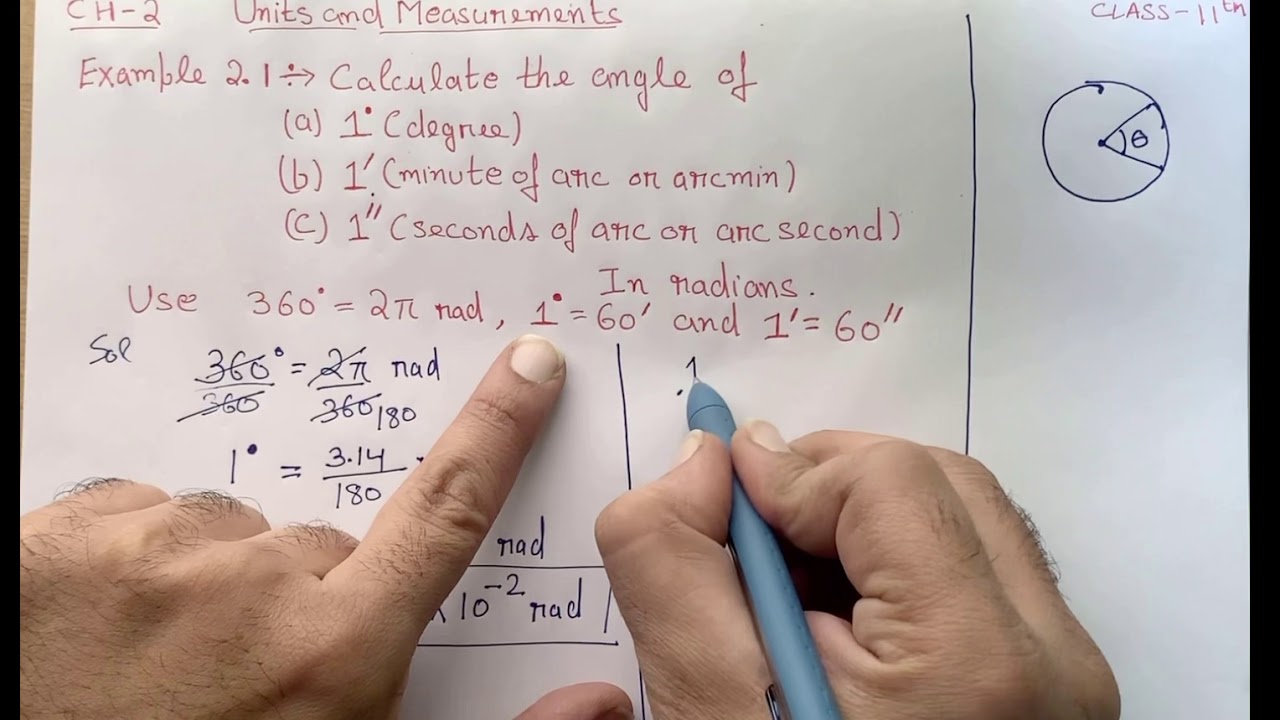 CH-2 Units and Measurements
CLASS-11th
Example 2.1 ÷→ Calculate the angle of
(a) 1° (degree)
(b) 1′ (minute of arc or arcmin)
(c) 1″ (seconds of arc or arc second)
In radians.
Use 360° = 2π rad, 1° = 60′ and 1′ = 60″
Sol
360° = 2π rad
360 360 180
1° = 3.14
180
rad
10⁻² rad
1
θ